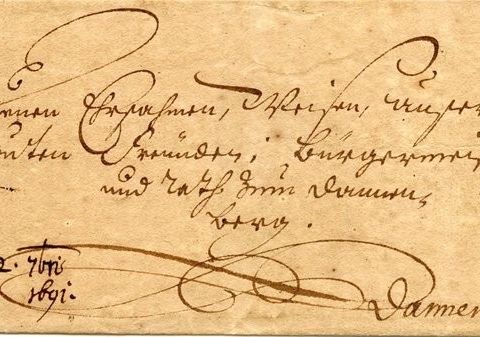 Denen Ehrsahmen, Weisen, unser
guten Freunden, Bürgermei
und Rath zum Dannen,
berg.
2. 7bris
1691.
Dannen